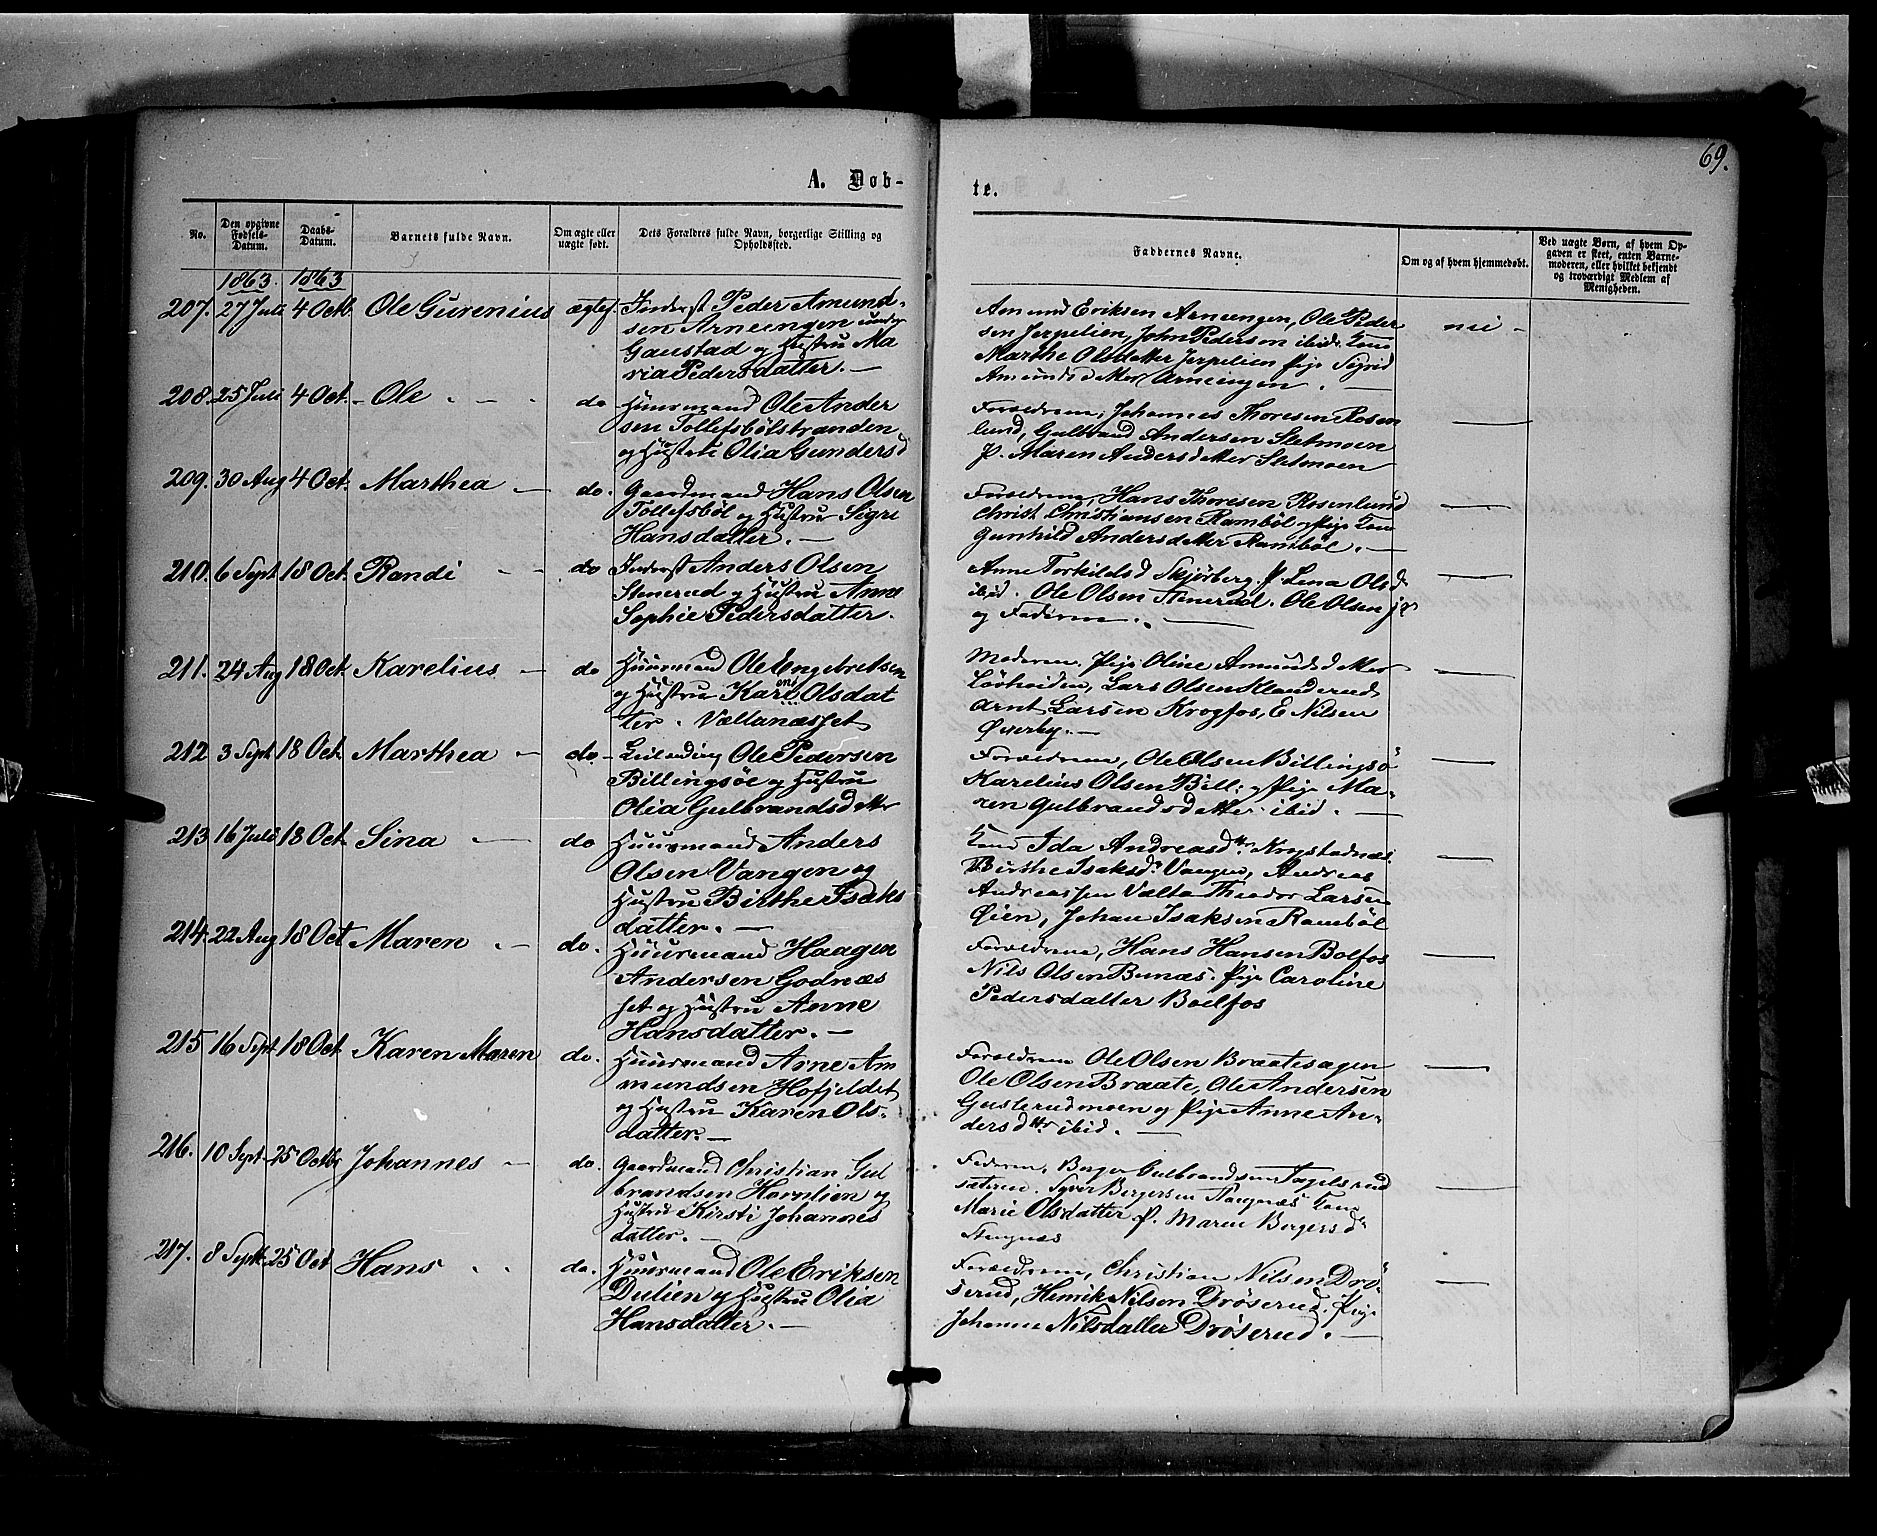 69.
A. Døb-
te.
No.
Den opgivne Fødsels-Datum.
Daabs-Datum.
Barnets fulde Navn.
Om ægte eller uægte født.
Dets Forældres fulde Navn, borgerlige Stilling og Opholdssted.
Faddernes Navne.
Om og af hvem hjemmedøbt.
Ved uægte Børn, af hvem Op-
gaven er skeet, enten Barne-
moderen, eller hvilket bekjendt
og troværdigt Medlem af
Menigheden.
1863. 1863
207. 27 Juli 4 Octb. Ole Gurenius ægtef. Inderst Peder Amund-
sen Arneengen under
Gaustad og Hustru Ma
ria Pedersdatter. —
Amund Eriksen Arneengen, Ole Peder
sen Jerpelien, John Pedersen ibid. Kone
Marthe Olsdatter Jerpelien Pige Sigrid
Amundsdatter Arneengen. —
nei -
208. 25 Juli 4 Oct. - Ole - do Huusmand Ole Ander
sen Tollefsbølstranden
og Hustru Olia Gundersd
Forældrene, Johannes Thoresen Rosen
lund, Gulbrand Andersen Sletmoen
P. Maren Andersdatter Sletmoen
209. 30 Aug 4 Oct. Marthea — do. Gaardmand Hans Olsen
Tollefsböl og Hustru Sigri
Hansdatter. —
Forældrene, Hans Thoresen Rosenlund
Christ Christiansen Ramböl og Pige
Gunhild Andersdatter Ramböl. —
210. 6 Sept 18 Oct. Randi - - do Inderst Anders Olsen
Stenerud og Hustru Anne
Sophie Pedersdatter.
Anne Torkildsd Skjörberg. P. Lena Olsd.
ibid. Ole Olsen Stenerud. Ole Olsen
og Faderen. —
211. 24 Aug 18 Oct. Karelius — do Huusmand Ole Engebretsen
og Hustru Kari Olsdat
ter. Vællanæsset
Moderen. Pige Oline Amundsdatter
Lars Olsen Klanderud
Arnt Larsen Krogfos, E Nilsen
Öserby. —
212 3 Sept 18 Oct. Marthea — do. - Leilending Ole Pedersen
Billingsöe og Hustru
Olia Gulbrandsdatter
Forældrene, Ole Olsen Billingsö
Karelius Olsen Bill: og Pige Ma-
ren Gulbrandsdatter ibid. —
213 16 Juli 18 Oct. Sina — do Huusmand Anders
Olsen Vangen og
Hustru Birthe Isaks
datter. —
Kone Ida Andreasdtr.
Birthe Isaksd. Vangen, Andreas
Andreassen Valta Theodor Larsen
Öien, Johan Isaksen Ramböl
214. 22 Aug 18 Oct Maren - do. Huusmand Haagen
Andersen Godnæs
set og Hustru Anne
Hansdatter. —
Forældrene, Hans Hansen Bolfos
Nils Olsen Bunæs. Pige Caroline
Pedersdatter Boelfos
215 16 Sept 18 Oct. Karen Maren do. Huusmand Arne Am
mundsen Hofjeldet
og Hustru Karen Ols-
datter. —
Forældrene Ole Olsen Braatesagen
Ole Olsen Braate, Ole Andersen
Gusterudmoen og Pige Anne An-
dersdtr ibid. —
216. 10 Sept. 25 Octbr Johannes — do. Gaardmand Christian Gul
brandsen Hornlien og
Hustru Kirsti Johannes
datter. —
Faderen, Berger Gulbrandsen Fagelsrud
sæteren. Syver Bergersen Stangnæs Kone
Marie Olsdatter P. Maren Bergersd
Stangnæs
217. 8 Septb. 25 Oct Hans - - do. Huusmand Ole Eriksen
Dulien og Hustru Olia
Hansdatter. —
Forældrene, Christian Nilsen Drö
serud, Henrik Nilsen Dröserud. Pige
Johanne Nilsdatter Dröserud. —